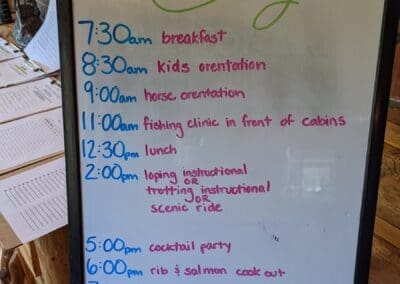 7:30am breakfast
8:30am kids orentation
9:00am horse orentation
11:00am fishing clinic in front of cabins
12:30pm lunch
2:00pm loping instructional
OR
trotting instructional
OR
scenic ride
5:00pm cocktail party
6:00pm rib & salmon cook out